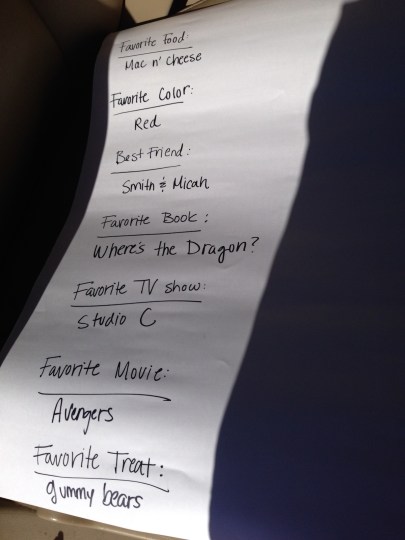 Favorite Food:
Mac n' Cheese
Favorite Color:
Red
Best Friend:
Smith & Micah
Favorite Book:
Where's the Dragon?
Favorite TV show:
Studio C
Favorite Movie:
Avengers
Favorite Treat:
gummy bears